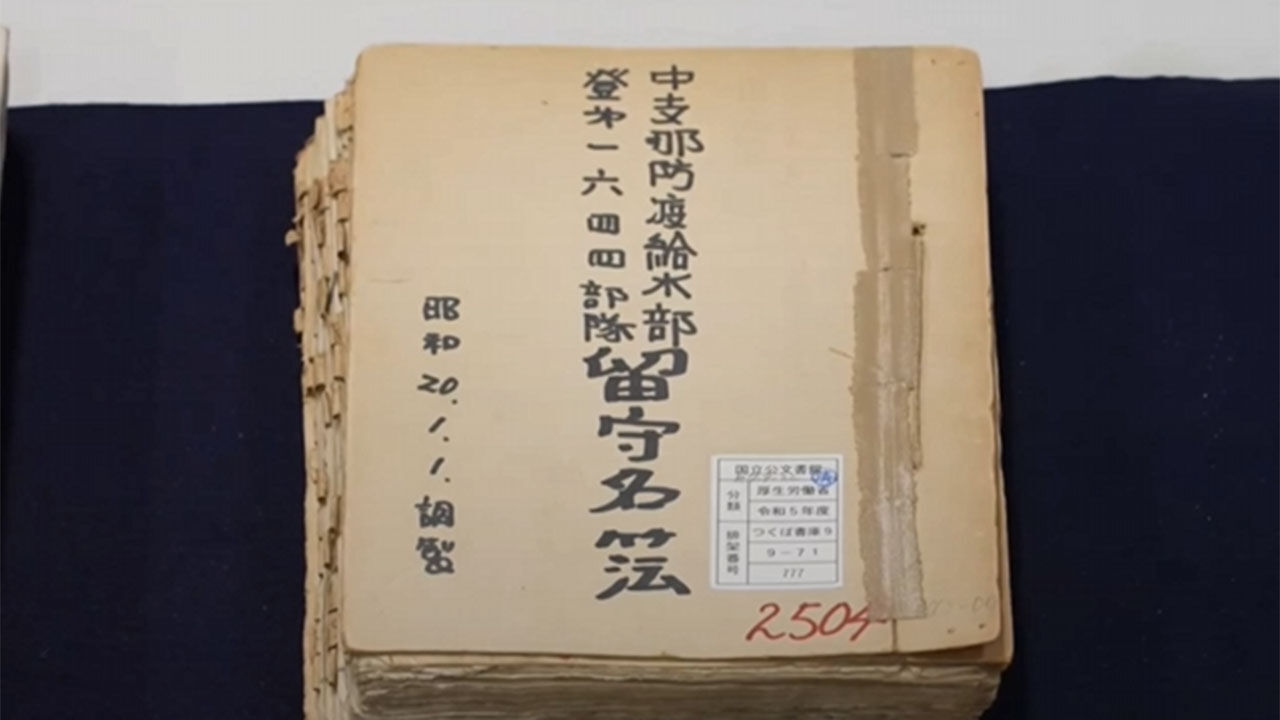 中支那防疫給水部
登第一六四四部隊
留守名簿
昭和20.1.1.調製
国立公文書館
分類
厚生労働省
令和5年度
排架番号
つくば書庫9
9-71
777
2504